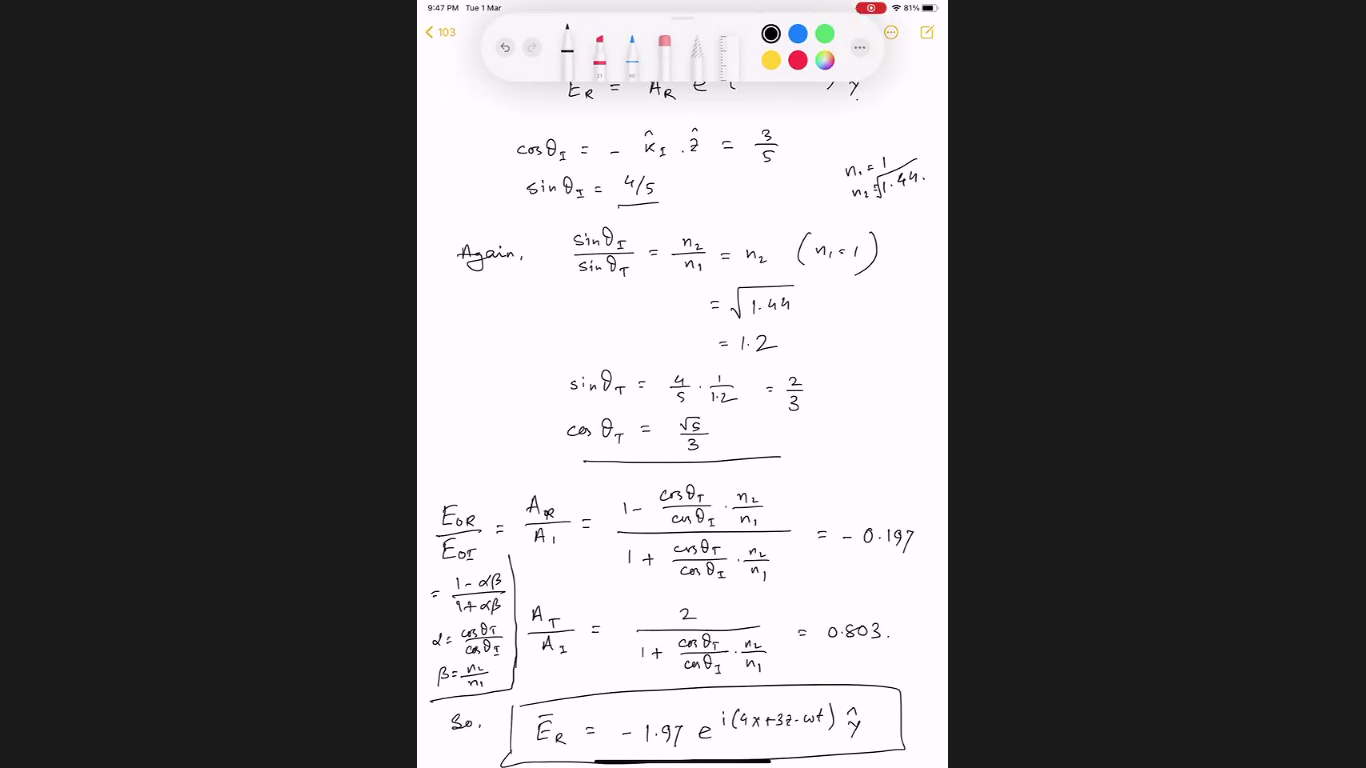 9:47 PM Tue 1 Mar
81%
103
21
E_R = A_R e^i( ) ŷ
cosθ_I = - k̂_I . ẑ = 3/5
sinθ_I = 4/5
n₁ = 1
n₂ = √1.44.
Again, sinθ_I / sinθ_T = n₂/n₁ = n₂ (n₁ = 1)
= √1.44
= 1.2
sinθ_T = 4/5 · 1/1.2 = 2/3
cosθ_T = √5/3
E_OR / E_OI = A_R / A_I = (1 - cosθ_T/cosθ_I · n₂/n₁) / (1 + cosθ_T/cosθ_I · n₂/n₁) = - 0.197
= (1-αβ)/(1+αβ)
α = cosθ_T/cosθ_I
β = n₂/n₁
A_T / A_I = 2 / (1 + cosθ_T/cosθ_I · n₂/n₁) = 0.803.
So, Ē_R = - 1.97 e^i(4x+3z-ωt) ŷ